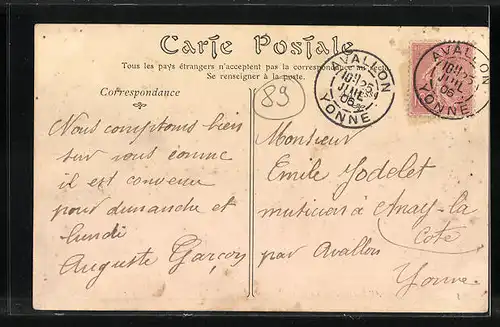 Carte Postale
Tous les pays étrangers n'acceptent pas la correspondance au recto
Se renseigner à la poste.
Correspondance
89
AVALLON
YONNE
JUIL
05
AVALLON
YONNE
JUIL
05
Nous comptons bien
sur vous comme
il est convenu
pour dimanche et
lundi
Auguste Garçon
Monsieur
Emile Jodelet
musicien à Anay-la
Cote
par Avallon
Yonne.